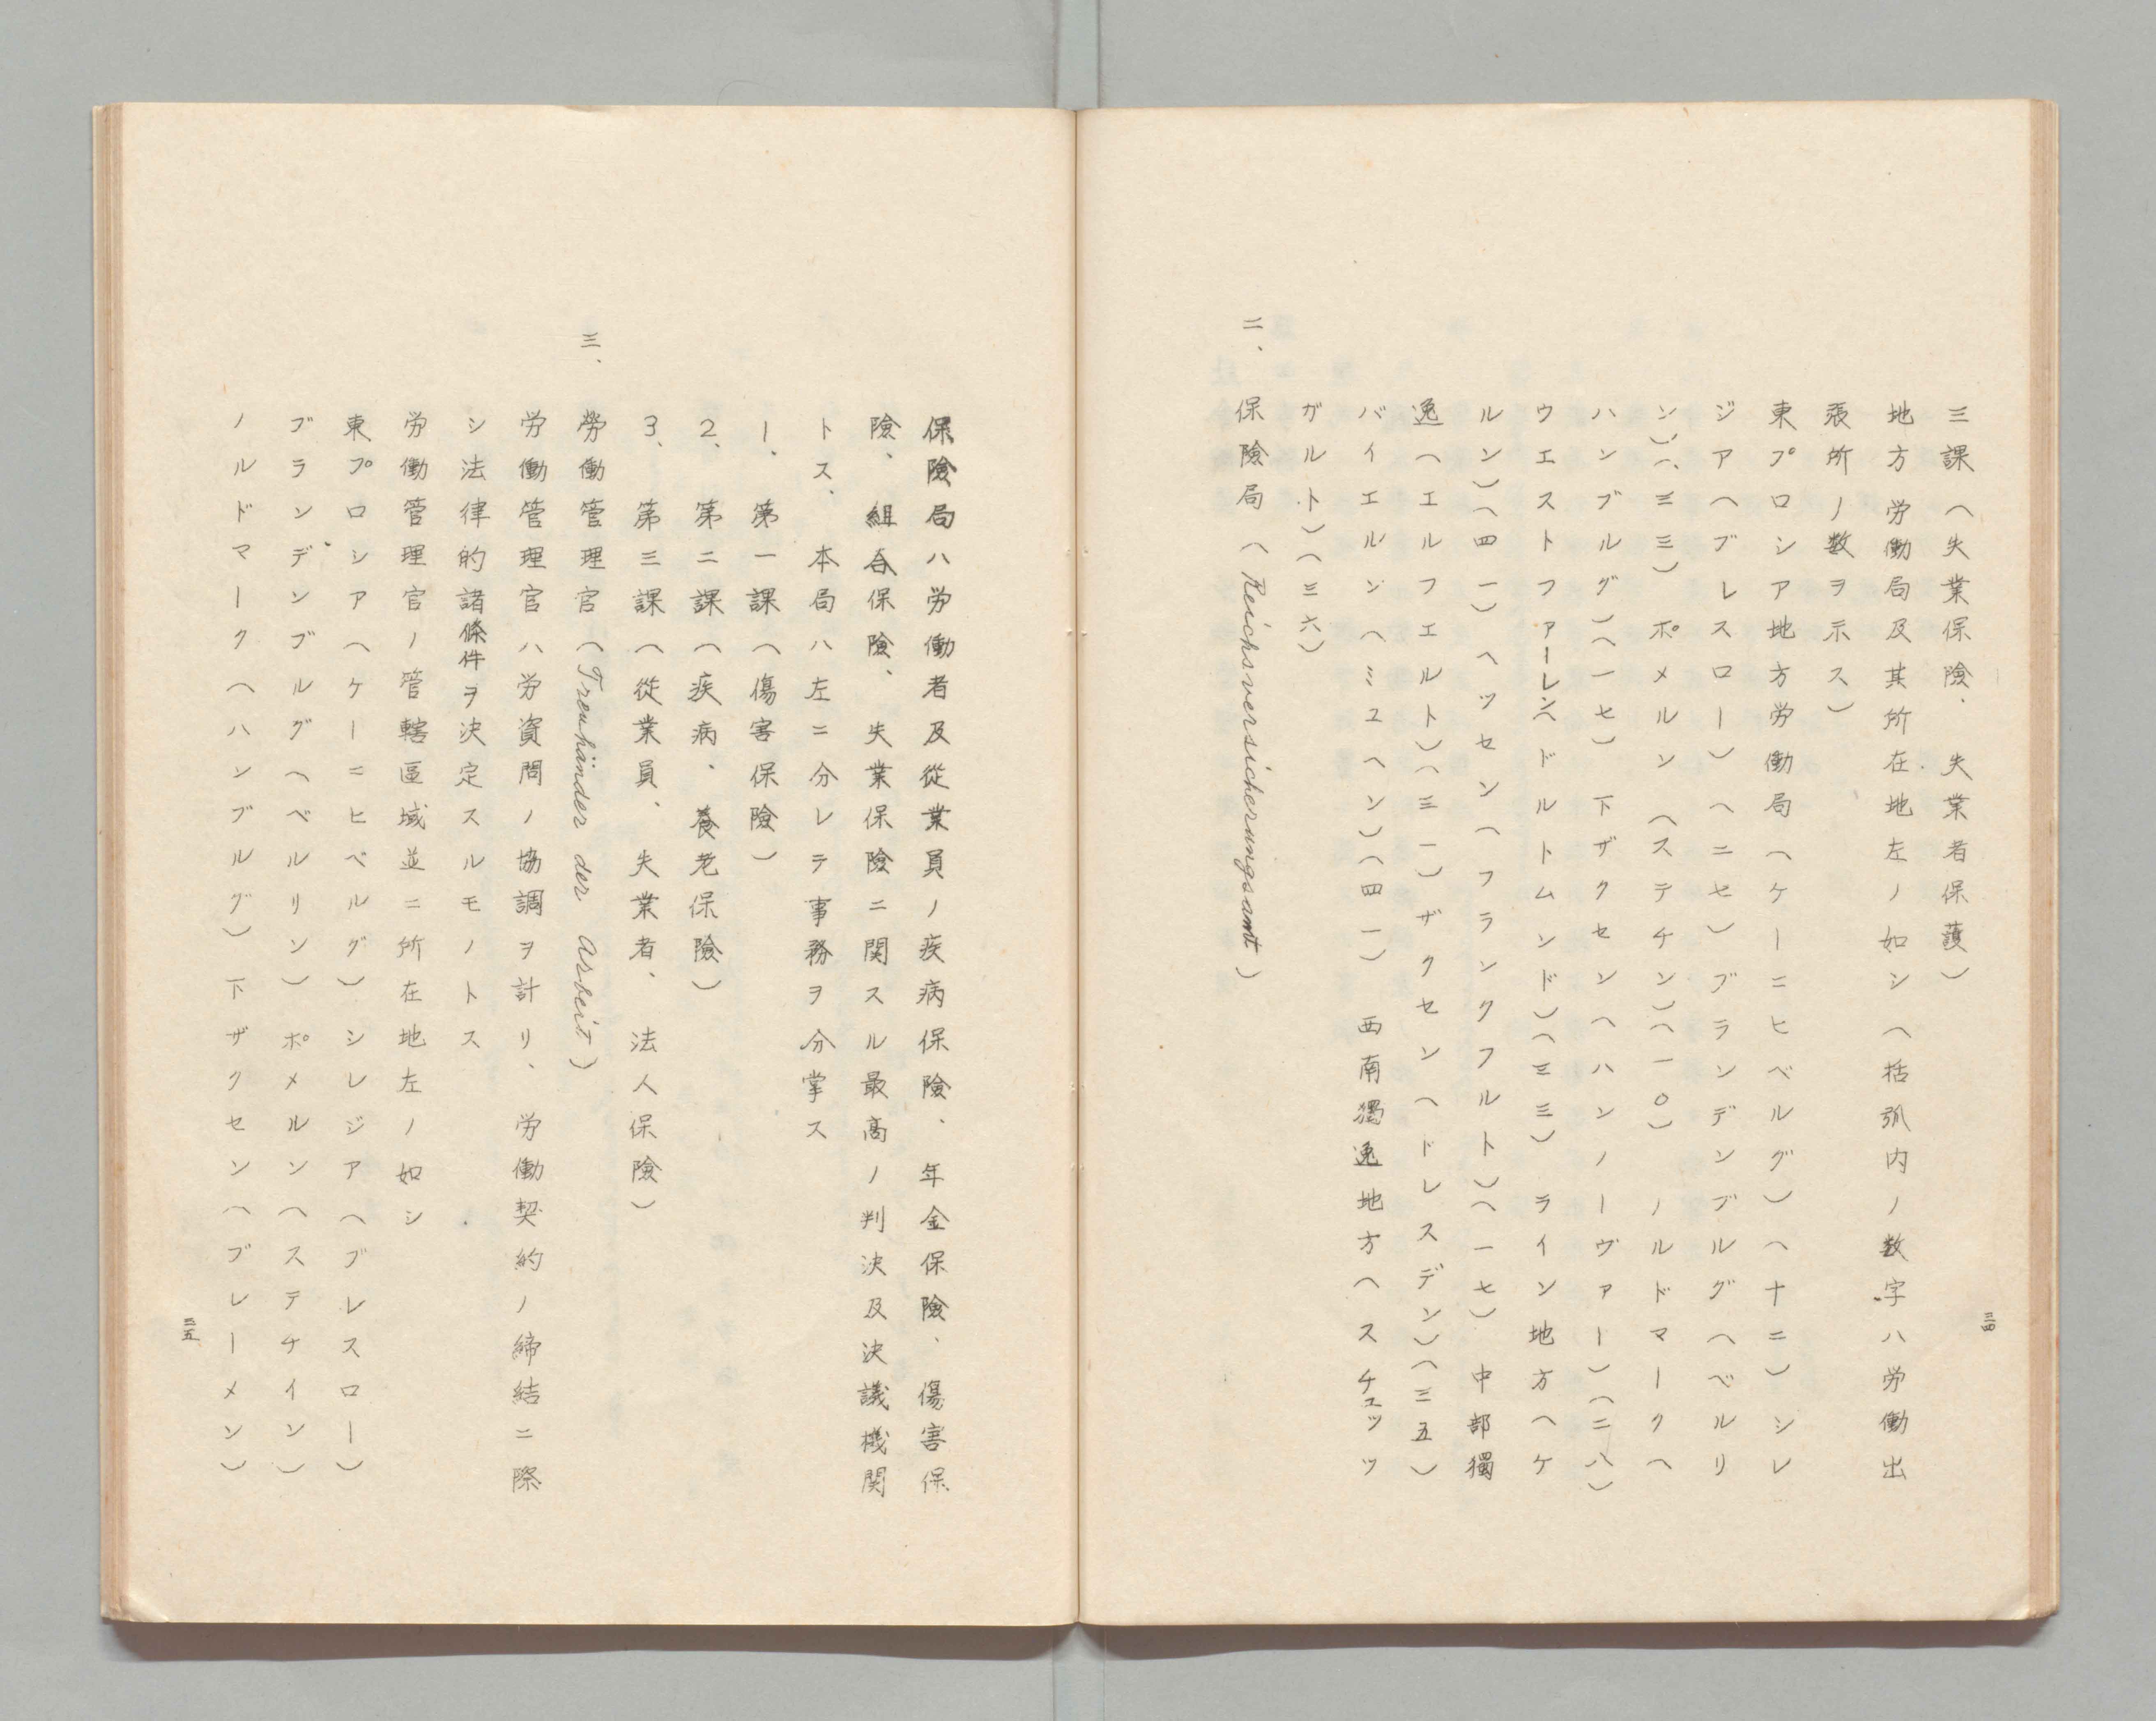 三課(失業保險、失業者保護)
地方労働局及其所在地左ノ如シ(括弧内ノ数字ハ労働出
張所ノ数ヲ示ス)
東プロシア地方労働局(ケーニヒベルグ)(十二)シレ
ジア(ブレスロー)(二七)ブランデンブルグ(ベルリ
ン)(三三)ポメルン(ステチン)(一〇)ノルドマーク(
ハンブルグ)(一七)下ザクセン(ハンノーヴァー)(二八)
ウエストファーレン(ドルトムンド)(三三)ライン地方(ケ
ルン)(四一)ヘツセン(フランクフルト)(一七)中部獨
逸(エルフエルト)(三一)ザクセン(ドレスデン)(三五)
バイエルン(ミユヘン)(四一)西南獨逸地方(スチユツツ
ガルト)(三六)
二、保險局(Reichsversicherungsamt)
三四
保險局ハ労働者及從業員ノ疾病保險、年金保險、傷害保
險、組合保險、失業保險ニ関スル最高ノ判決及決議機関
トス、本局ハ左ニ分レテ事務ヲ分掌ス
1、第一課(傷害保險)
2、第二課(疾病、養老保險)
3、第三課(從業員、失業者、法人保險)
三、勞働管理官(Treuhänder der Arbeit)
労働管理官ハ労資問ノ協調ヲ計リ、労働契約ノ締結ニ際
シ法律的諸條件ヲ決定スルモノトス
労働管理官ノ管轄區域並ニ所在地左ノ如シ
東プロシア(ケーニヒベルグ)シレジア(ブレスロー)
ブランデンブルグ(ベルリン)ポメルン(ステチイン)
ノルドマーク(ハンブルグ)下ザクセン(ブレーメン)
三五